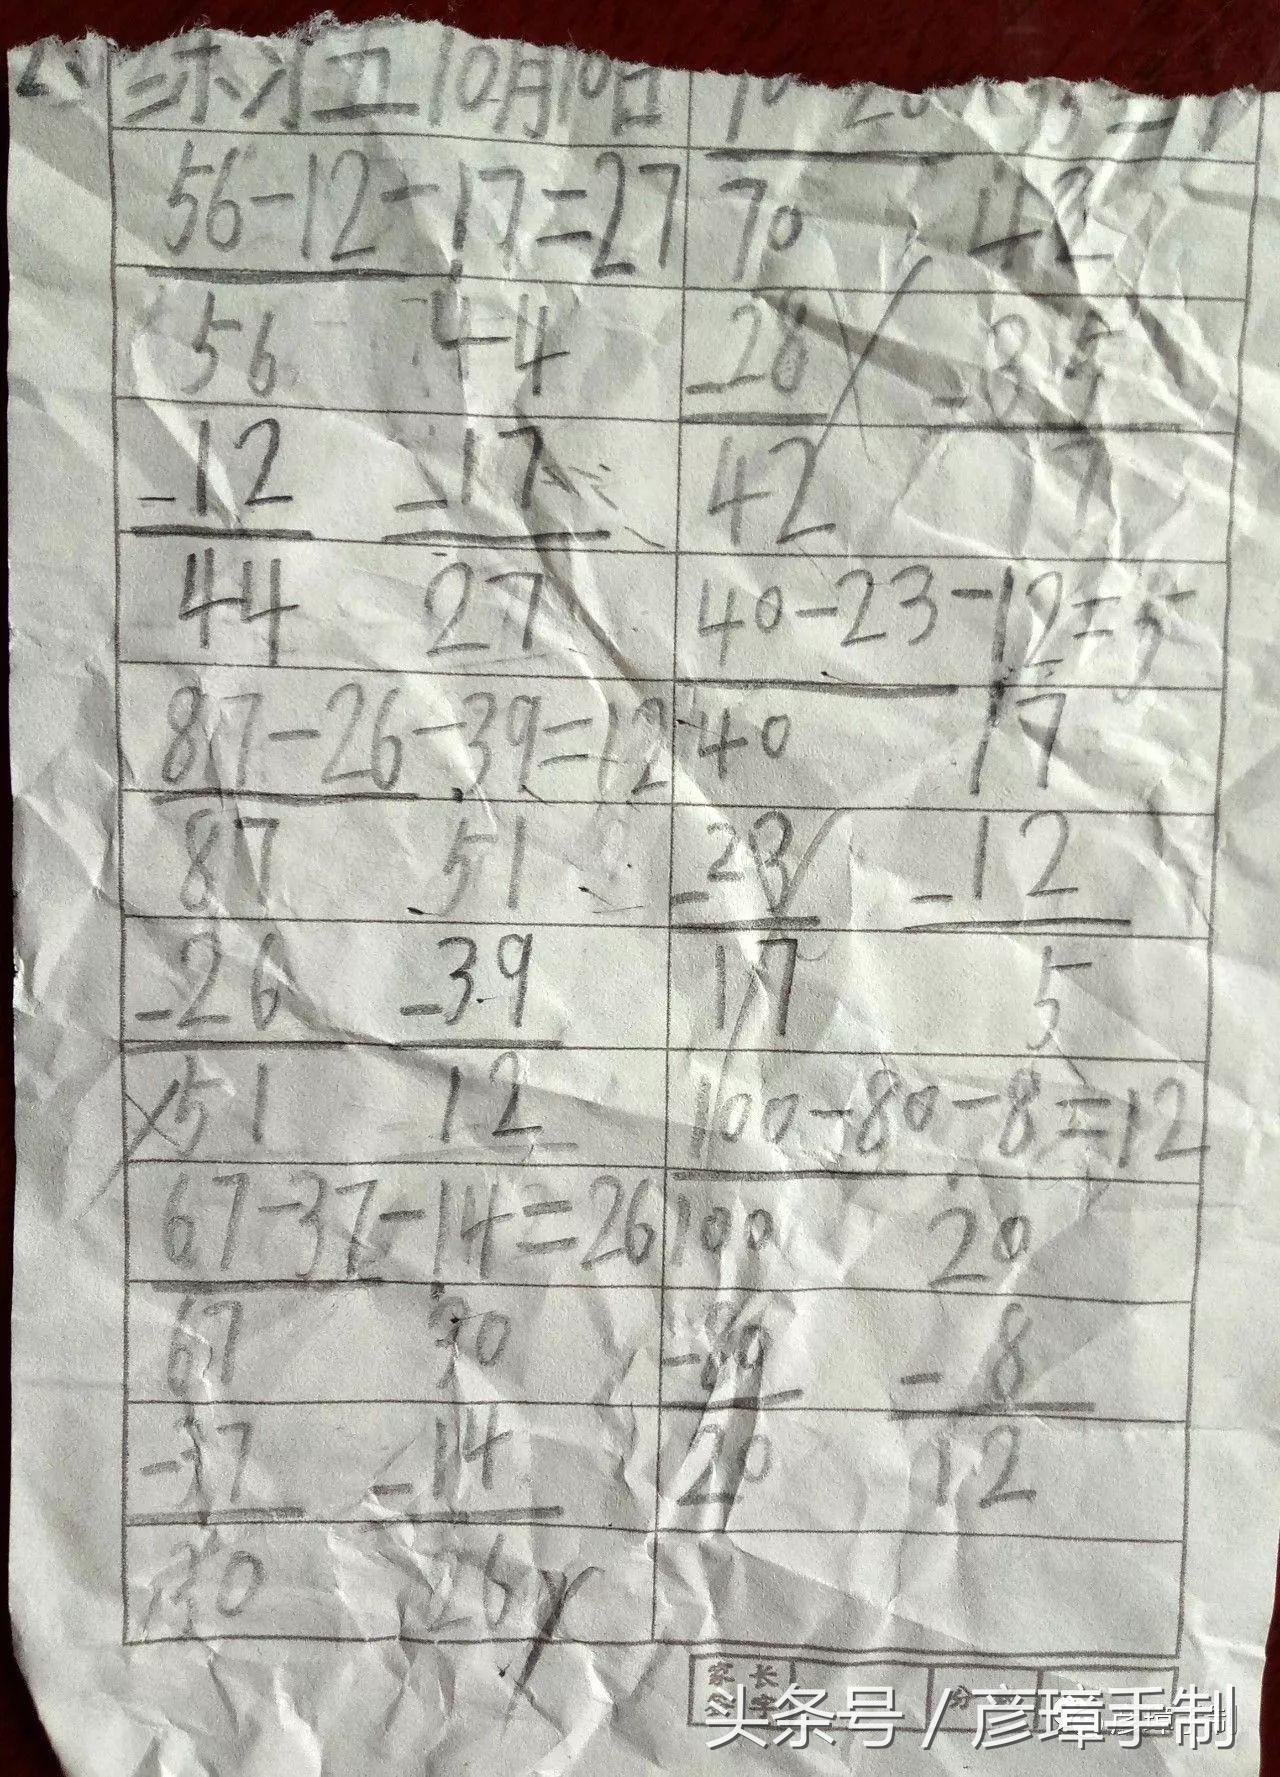 10月10日
56-12-17=27
56 44
-12 -17
44 27
87-26-39=12
87 51
-26 -39
51 12
67-37-14=26
67 30
-37 -14
30 26
70 42
-28 -35
42 17
40-23-12=5
40 17
-23 -12
17 5
100-80-8=12
100 20
-80 -8
20 12
家长
头条号 / 彦璋手制